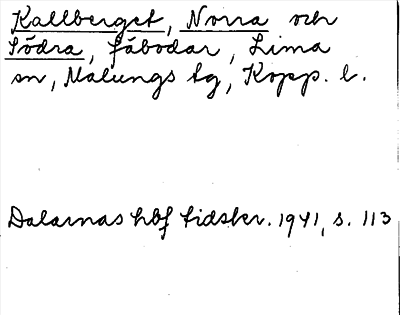 Kallberget, Norra och
Södra, fäbodar, Lima
sn, Malungs tg, Kopp. l.
Dalarnas hbf tidskr. 1941, s. 113